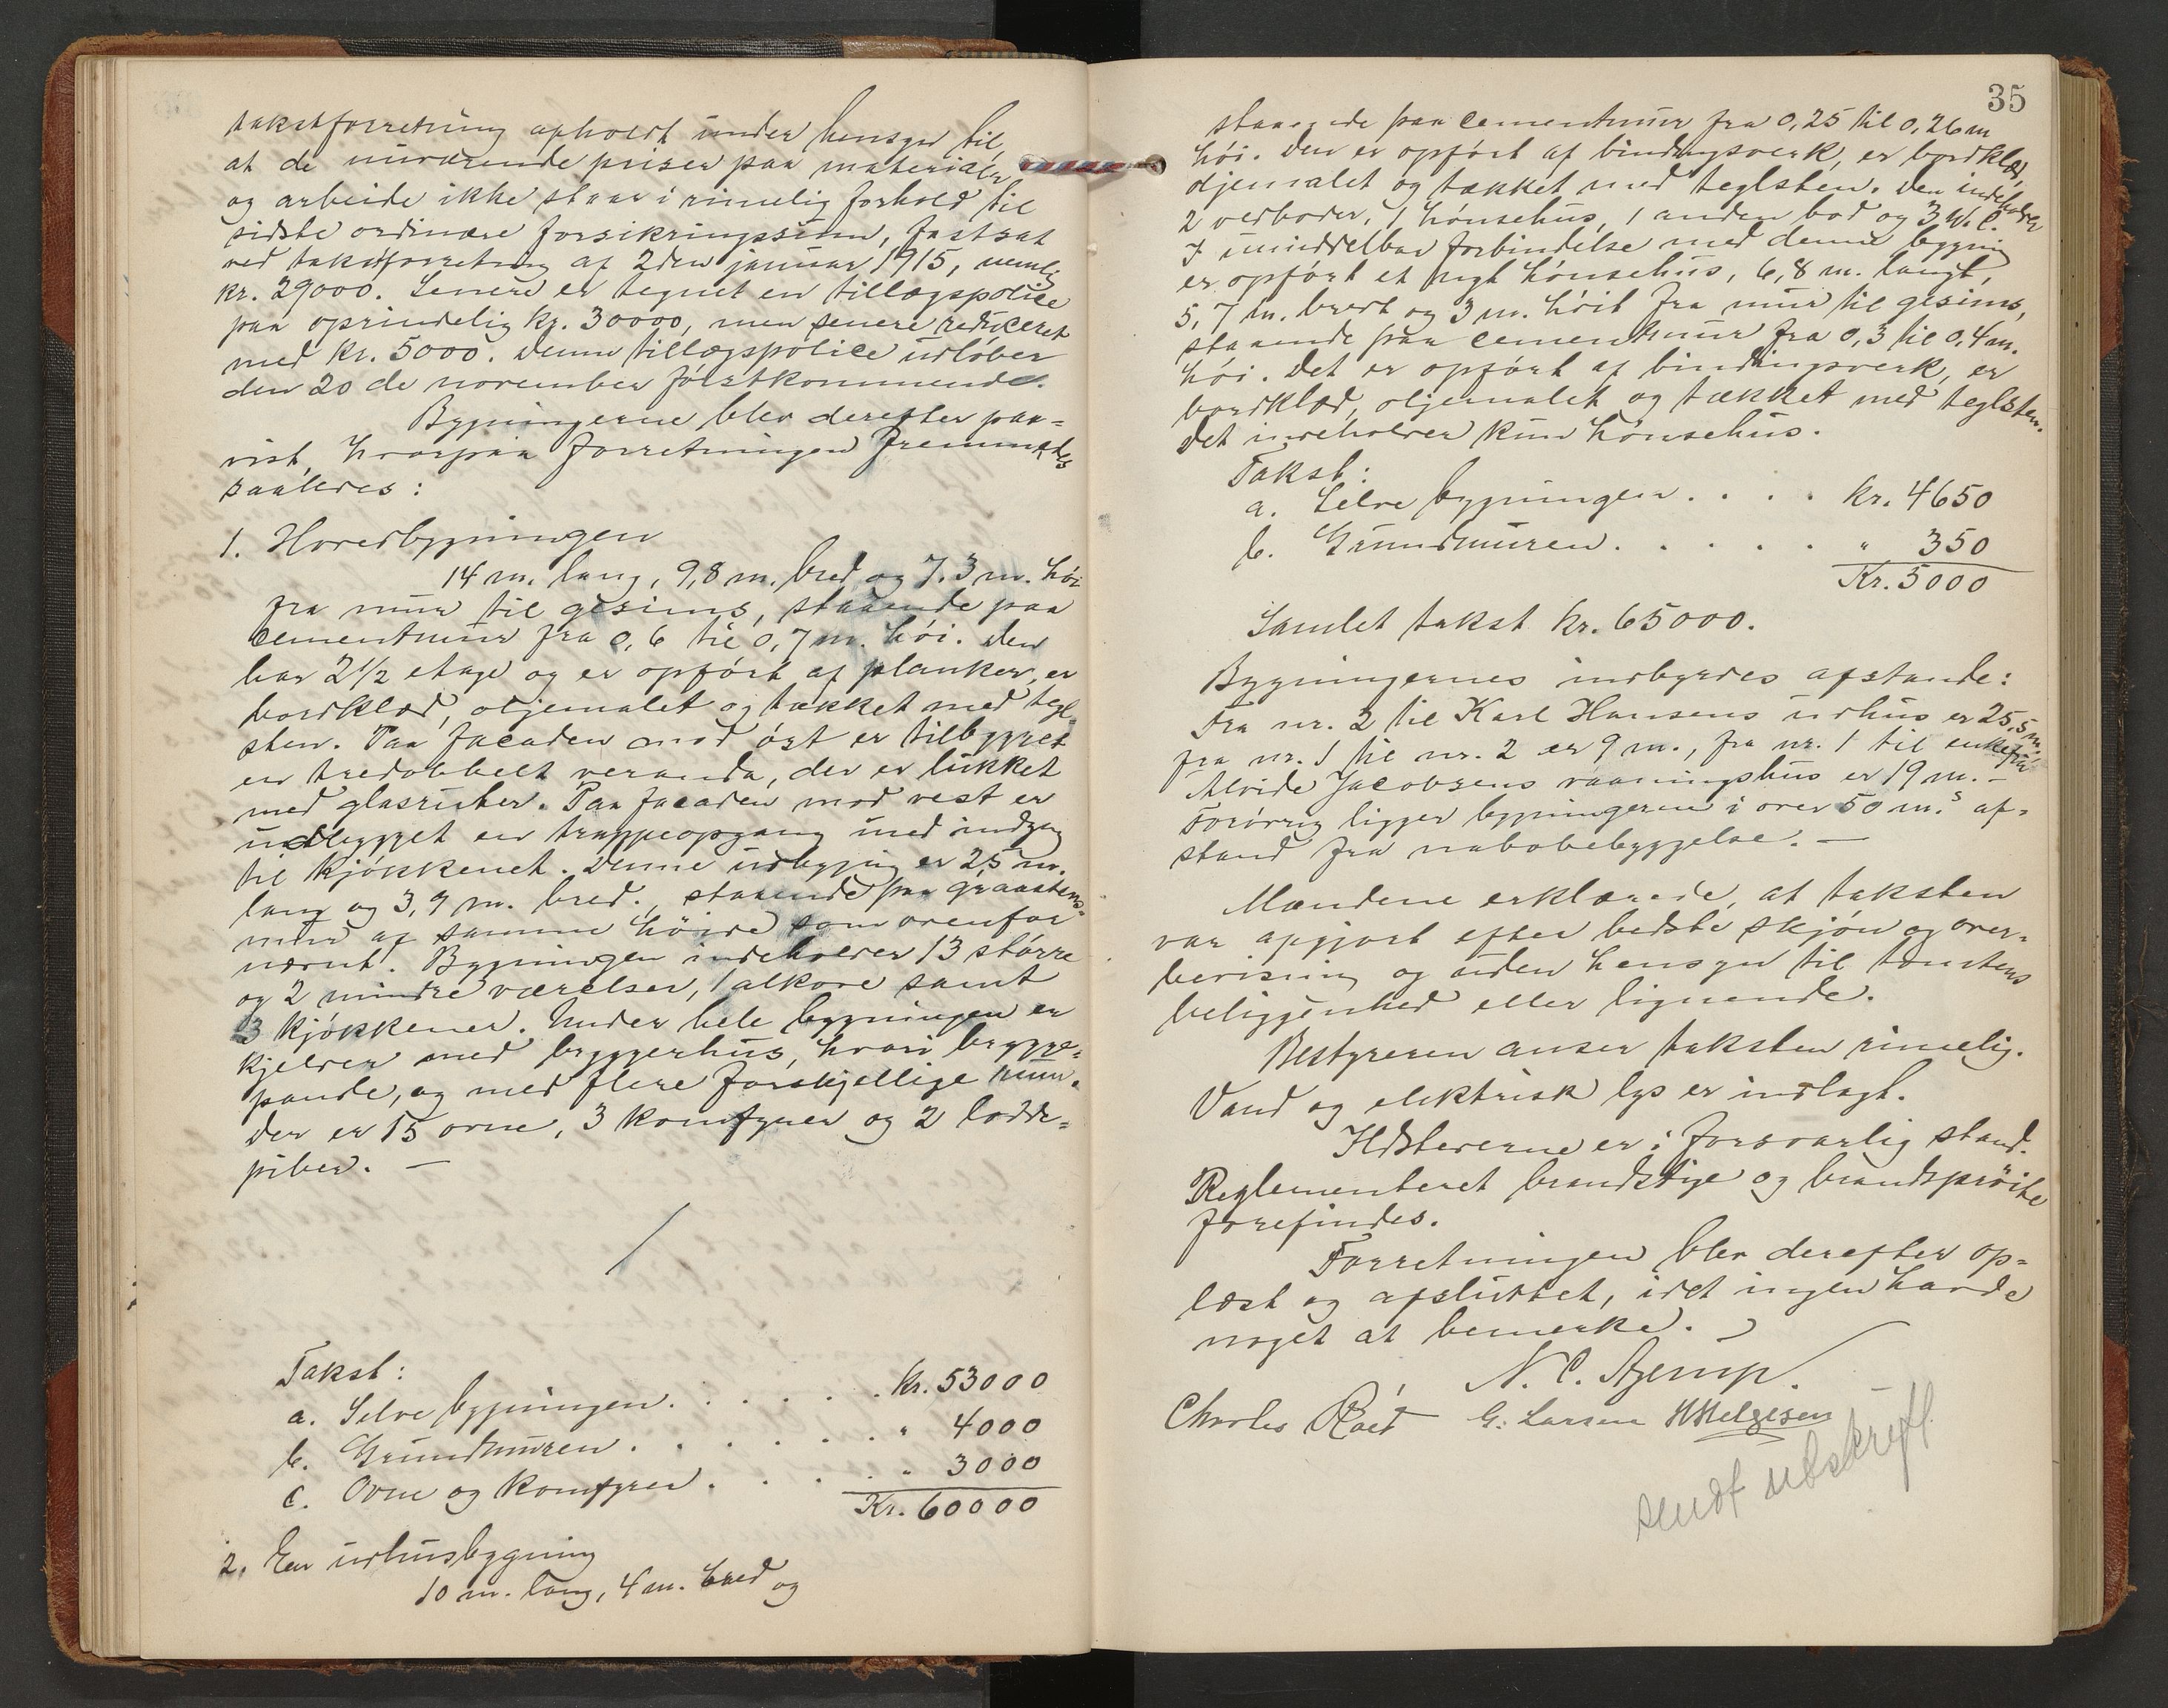 takstforretning afholdt under hensyn til,
at de nuværende priser paa materialer
og arbeide ikke staar i rimelig forhold til
sidste ordinære forsikringssum, fastsat
ved takstforretning af 2den januar 1915, nemlig
kr. 29000. Senere er tegnet en tillægspolice
paa oprindelig kr. 30000, men senere reduceret
med kr. 5000. Denne tillægspolice udløber
den 20de november førstkommende.
Bygningerne blev derefter paa=
vist, hvorpaa forretningen fremmedes
saaledes:
1. Hovedbygningen
14 m. lang, 9,8 m. bred og 7.3 m. høi
fra mur til gesims, staaende paa
cementmur fra 0,6 til 0,7 m. høi. Den
har 2 1/2 etage og er opført af planker, er
bordklæd, oljemalet og tækket med tegl=
sten. Paa facaden mod øst er tilbygget
en tredobbelt veranda, der er lukket
med glasruter. Paa facaden mod vest er
udbygget en trappeopgang med indgang
til kjøkkenet. Denne udbygning er 2,5 m.
lang og 3,9 m. bred, staaende paa graastens=
mur af samme høide som ovenfor
nævnt. Bygningen indeholder 13 større
og 2 mindre værelser, 1 alkove samt
3 kjøkkener. Under hele bygningen er
kjelder med bryggerhus, hvori brygge=
pande, og med flere forskjellige rum.
Der er 15 ovne, 3 komfyrer og 2 lodde=
piber. —
Takst:
a. Selve bygningen . . . . . kr. 53000
b. Grundmuren . . . . . . " 4000
c. Ovne og komfyrer . . . . " 3000
Kr. 60000
2. En udhusbygning
10 m. lang, 4 m. bred og
35
staaende paa cementmur fra 0,25 til 0,26 m
høi. Den er opført af bindingsverk, er bordklæd,
oljemalet og tækket med teglsten. Den indeholder
2 vedboder, 1 hønsehus, 1 anden bod og 3 W.C.
I umiddelbar forbindelse med denne bygning
er opført et nyt hønsehus, 6,8 m. langt,
5,7 m. bredt og 3 m. høit fra mur til gesims,
staaende paa cementmur fra 0,3 til 0,4 m.
høi. Det er opført af bindingsverk, er
bordklæd, oljemalet og tækket med teglsten.
Det indeholder kun hønsehus.
Takst:
a. Selve bygningen . . . . kr. 4650
b. Grundmuren . . . . . " 350
Kr. 5000
Samlet takst kr. 65000.
Bygningernes indbyrdes afstande:
Fra nr. 2 til Karl Hansens udhus er 25,5 m.,
fra nr. 1 til nr. 2 er 9 m., fra nr. 1 til enkefru
Alvide Jacobsens vaaningshus er 19 m. —
Forøvrig ligger bygningerne i over 50 m.s af=
stand fra nabobebyggelse. —
Mændene erklærede, at taksten
var afgjort efter bedste skjøn og over=
bevisning og uden hensyn til tomtens
beliggenhed eller lignende.
Bestyreren anser taksten rimelig.
Vand og elektrisk lys er indlagt.
Ildstederne er i forsvarlig stand.
Reglementeret brandstige og brandsprøite
forefindes.
Forretningen blev derefter op=
læst og afsluttet, idet ingen havde
noget at bemerke.
N. C.
Charles G. Larsen H Helgesen
sendt utskrift